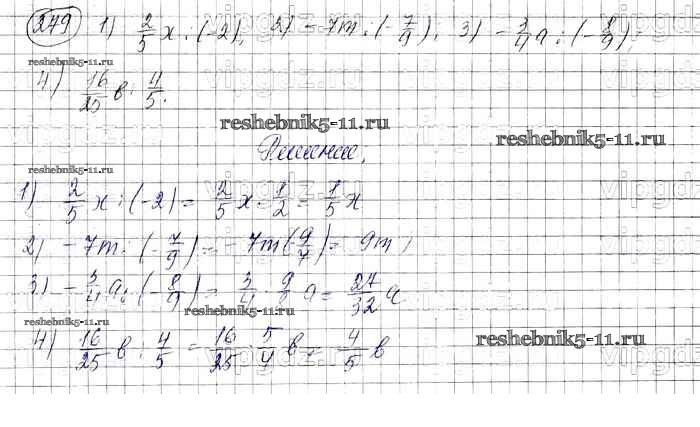 279 1) 2/5 x : (-2); 2) -7m : (-7/9); 3) -3/4 a : (-8/9);
reshebnik5-11.ru
4) 16/25 в : 4/5.
reshebnik5-11.ru
reshebnik5-11.ru
Решение.
reshebnik5-11.ru
1) 2/5 x : (-2) = 2/5 x · 1/2 = 1/5 x
2) -7m : (-7/9) = -7m (-9/7) = 9m;
3) -3/4 a : (-8/9) = 3/4 · 9/8 a = 27/32 a
reshebnik5-11.ru
reshebnik5-11.ru
4) 16/25 в : 4/5 = 16/25 · 5/4 в = 4/5 в
reshebnik5-11.ru